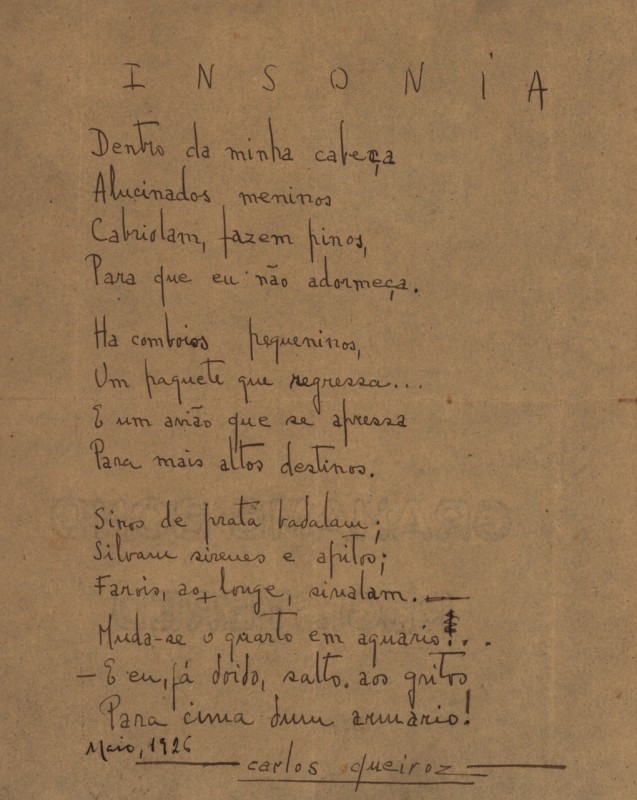 INSONIA
Dentro da minha cabeça
Alucinados meninos
Cabriolam, fazem pinos,
Para que eu não adormeça.
Ha comboios pequeninos,
Um paquete que regressa...
E um avião que se apressa
Para mais altos destinos.
Sinos de prata badalam;
Silvam sirenes e apitos;
Farois, ao longe, sinalam.—
Muda-se o quarto em aquario!..
— E eu, já doido, salto. aos gritos
Para cima dum armario!
Maio, 1926
carlos queiroz